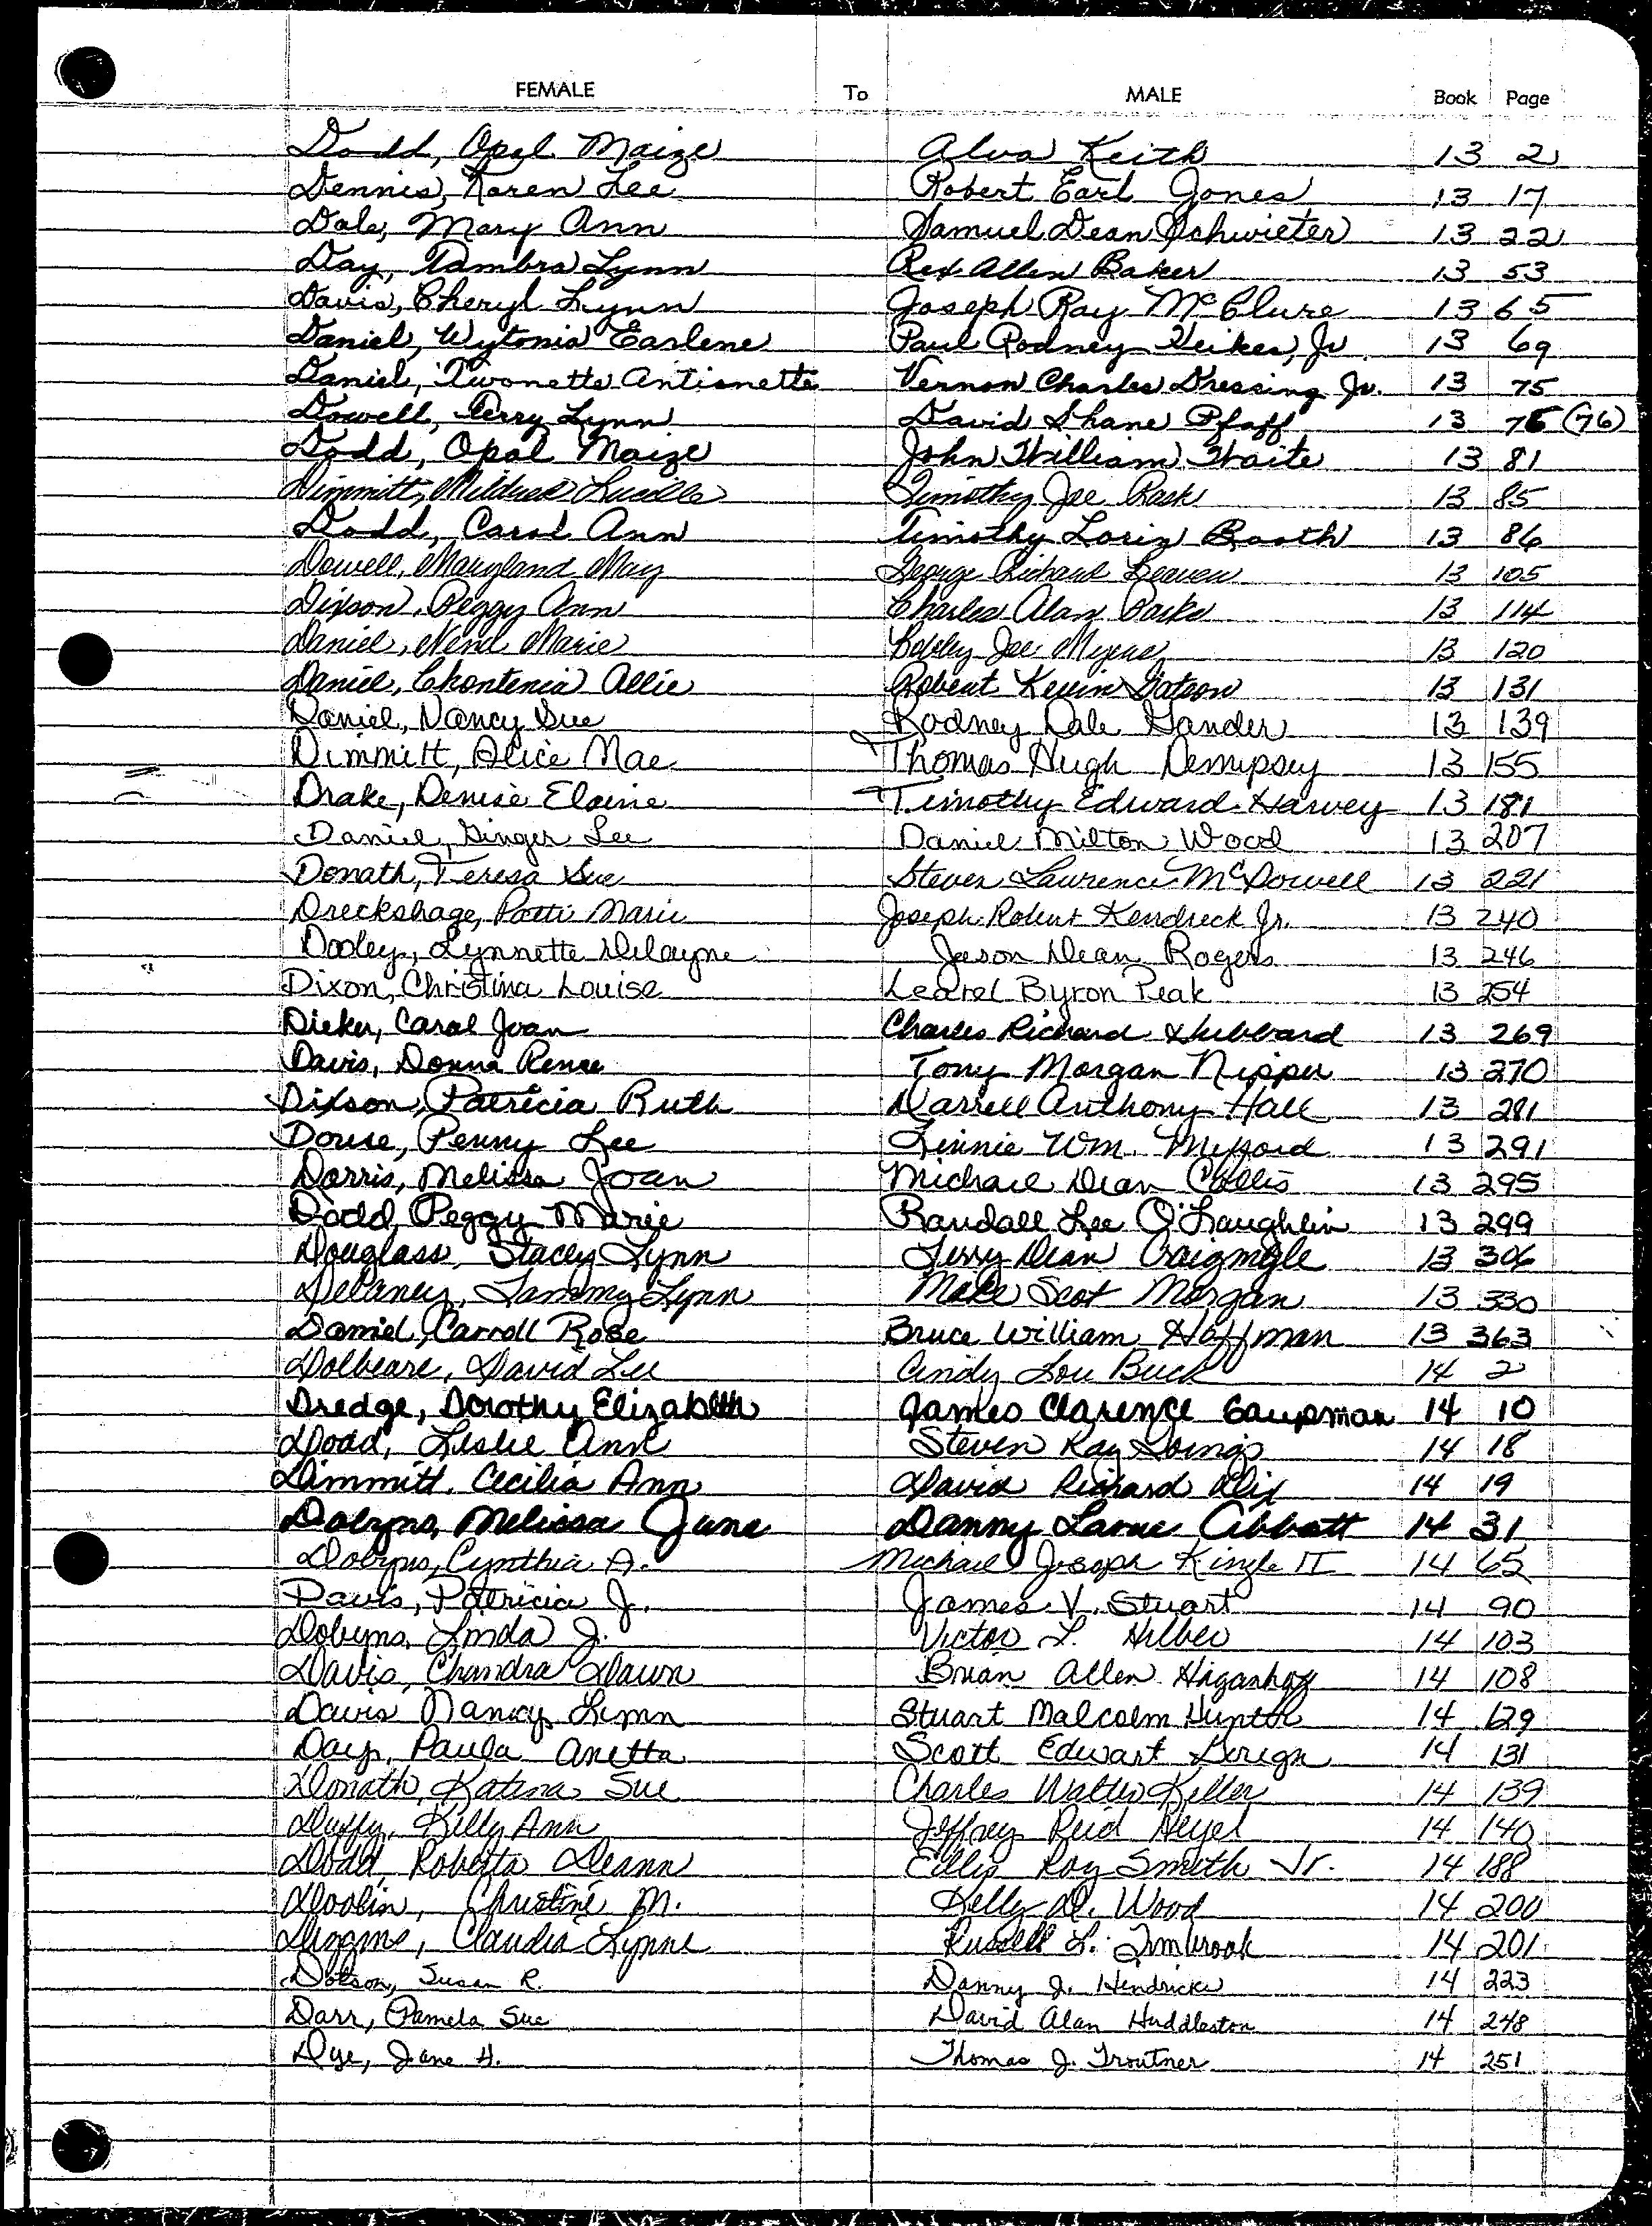 FEMALE To MALE Book Page
Dodd, Opal Maize Alva Keith 13 2
Dennis, Karen Lee Robert Earl Jones 13 17
Dale, Mary Ann Samuel Dean Schwieter 13 22
Day, Tambra Lynn Rex Allen Baker 13 53
Davis, Cheryl Lynn Joseph Ray McClure 13 65
Daniel, Wytonia Earlene Paul Rodney Heikes, Jr 13 69
Daniel, Twonette Antionette Vernon Charles Dressing Jr. 13 75
Dowell, Perry Lynn David Shane Pfaff 13 76 (76)
Dodd, Opal Maize John William Waite 13 81
Dimmitt, Mildred Lucille Timothy Joe Rask 13 85
Dodd, Carol Ann Timothy Lorin Booth 13 86
Dowell, Maryland May George Richard Leaven 13 105
Dixson, Peggy Ann Charles Alan Parks 13 114
Daniel, Marie Bobby Joe Myers 13 120
Daniel, Chontenia Allie Robert Kevin Gatson 13 131
Daniel, Nancy Sue Rodney Dale Gander 13 139
Dimmitt, Alice Mae Thomas Hugh Dempsey 13 155
Drake, Denise Elaine Timothy Edward Harvey 13 181
Daniel, Ginger Lee Daniel Milton Wood 13 207
Donath, Teresa Sue Steven Lawrence McDowell 13 221
Dreckshage, Patti Marie Joseph Robert Kendrick Jr. 13 240
Dooley, Lynnette Delayne Jason Dean Rogers 13 246
Dixon, Christina Louise Learel Byron Peak 13 254
Dieker, Carol Joan Charles Richard Hubbard 13 269
Davis, Donna Renee Tony Morgan Nipper 13 270
Dixson, Patricia Ruth Darrell Anthony Hall 13 281
Douse, Penny Lee Linnie Wm. Mefford 13 291
Dorris, Melissa Joan Michael Dean Collis 13 295
Dodd, Peggy Marie Randall Lee O'Laughlin 13 299
Douglass, Stacey Lynn Terry Dean Craigmyle 13 306
Delaney, Tammy Lynn Scot Morgan 13 330
Daniel, Carroll Rose Bruce William Hoffman 13 363
Dolbeare, David Lee Cindy Lou Buck 14 2
Dredge, Dorothy Elizabeth James Clarence Gaupman 14 10
Dodd, Leslie Ann Steven Ray Goings 14 18
Dimmitt, Cecilia Ann David Richard Dix 14 19
Dobyns, Melissa June Danny Larue Abbott 14 31
Dobyns, Cynthia A. Michael Joseph Kingle II 14 65
Davis, Patricia J. James V. Stuart 14 90
Dobyns, Linda J. Victor L. Hilbeo 14 103
Davis, Chandra Dawn Brian Allen 14 108
Davis Nancy Lynn Stuart Malcolm Hunter 14 129
Day, Paula Anetta Scott Edwart 14 131
Donath, Katina Sue Charles Walter Keller 14 139
Duffy, Kelly Ann Jeffrey Reid Heyel 14 140
Dodd, Roberta Deann Ellis Roy Smith Jr. 14 188
Doolin, Christine M. Kelly D. Wood 14 200
Claudia Lynne Russell L. Timbrook 14 201
Dotson, Susan R. Danny J. Hendricks 14 223
Darr, Pamela Sue David Alan Huddleston 14 248
Dye, Jane H. Thomas J. Troutner 14 251